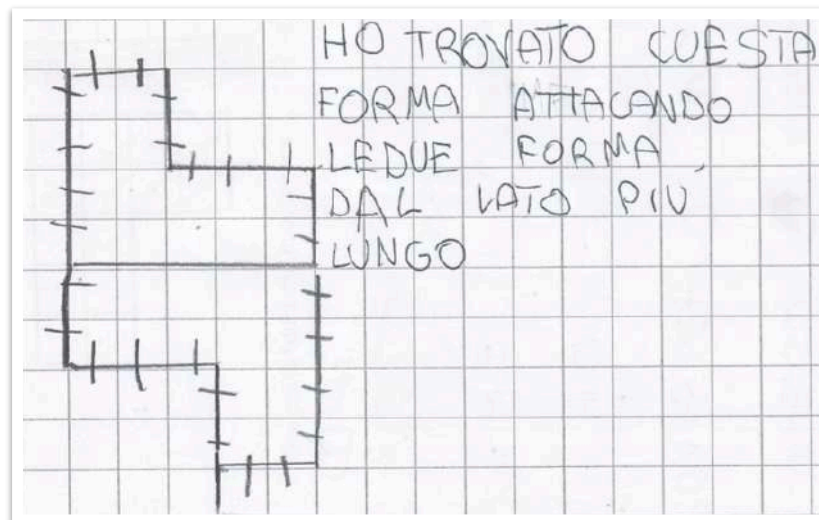 HO TROVATO CUESTA
FORMA ATTACANDO
LE DUE FORMA
DAL LATO PIU
LUNGO